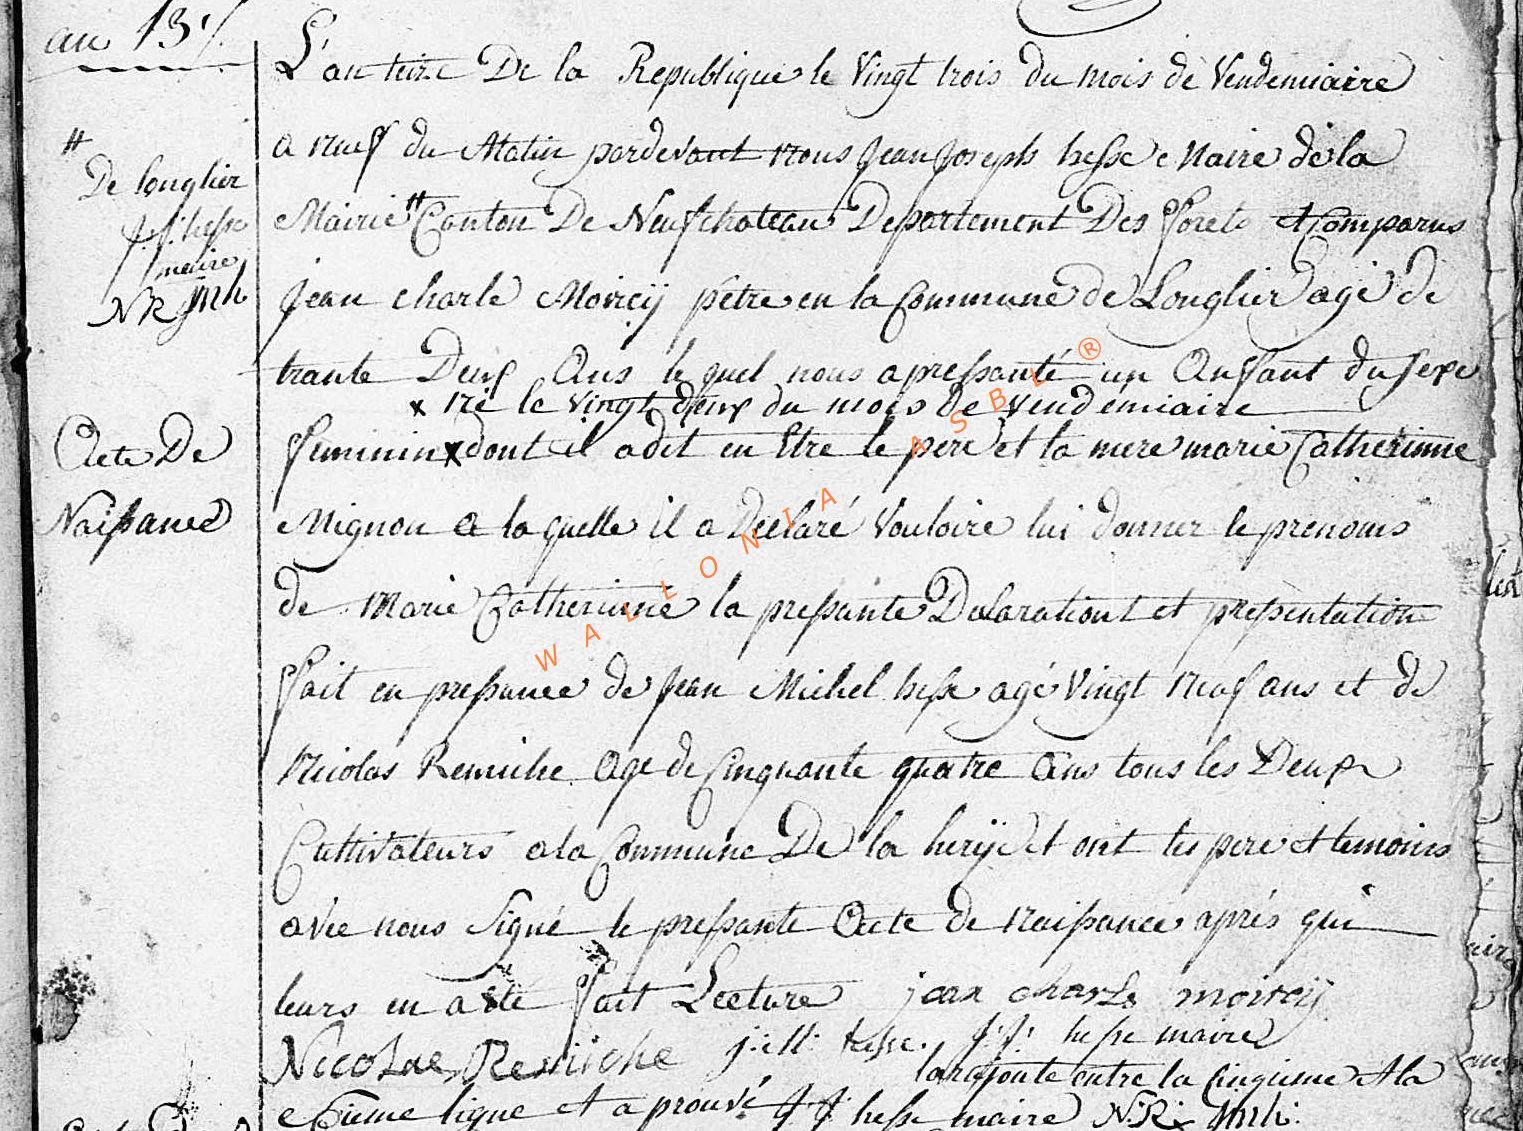 an 13
L'an treize De la Republique le Vingt trois du mois de Vendemiaire
a neuf du Matin pardevant nous Jean Joseph hesse Maire de la
#
De longlier
j j hesse
maire
NR JMh
Mairie # Canton De Neufchateau Departement Des forets et Comparus
Jean charle Moircÿ pêtre en la Commune de Longlier agé de
trante Deux Ans le quel nous a pressanté un Anfant du sexe
x né le vingt deux du mois de vendemiaire
feminin x dont il a dit en Etre le pere et la mere marie Catherinne
Acte De
Naissance
Mignon a la quelle il a Déclaré Vouloire lui donner le prenoms
de Marie Catherinne la pressante Dalarationt et pressentation
fait en pressance de Jean Michel hesse agé Vingt neuf ans et de
Nicolas Remiche Age de Cinquante quatre Ans tous les Deux
Cultivateurs a la Commune De la herÿe et ont les pere et temoins
avec nous Signé le pressante Acte de naissance aprés qui
leurs en a eté fait Lecture jean charle moircÿ
Nicolae Remiche j:M: hesse. J:J: hesse maire
la rajoute entre la Cinquime et la
Sixime ligne et a prouvé J J hesse maire N:R: JMh:
WALLONIA ASBL ®